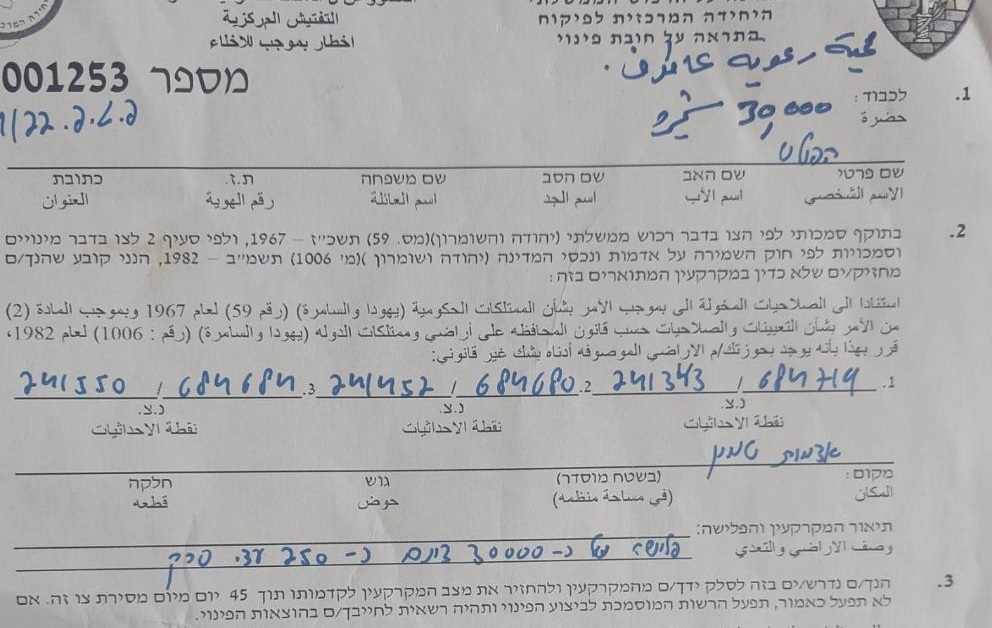 היחידה המרכזית לפיקוח
התפתיש المركزية
בתראה על חובת פינוי
اخطار بموجب للاخلاء
מספר 001253
محمية رعوية
1. לכבוד:
حضرة
30,000
שם פרטי שם האב שם הסב שם משפחה ת.ז. כתובת
الاسم الشخصي اسم الأب اسم الجد اسم العائلة رقم الهوية العنوان
2. בתוקף סמכותי לפי הצו בדבר רכוש ממשלתי (יהודה והשומרון)(מס. 59) תשכ״ז – 1967, ולפי סעיף 2 לצו בדבר מינויים
וסמכויות לפי חוק השמירה על אדמות ונכסי המדינה (יהודה ושומרון )(מ׳ 1006) תשמ״ב – 1982, הנני קובע שהנך/ם
מחזיק/ים שלא כדין במקרקעין המתוארים בזה:
استنادا الى الصلاحيات المخولة الى بموجب الأمر بشأن الممتلكات الحكومية (يهودا والسامرة) (رقم 59) لعام 1967 وبموجب المادة (2)
من الأمر بشأن التعيينات والصلاحيات حسب قانون المحافظه على أراضي وممتلكات الدوله (يهودا و السامرة) (رقم : 1006) لعام 1982،
قرر بهذا بأنه يوجد بحوزتك/م الاراضي الموصوفه أدناه بشك غير قانوني:
1. 241343 / 684714 2. 241452 / 684680 3. 241550 / 684684
נ.צ. נ.צ. נ.צ.
نقطة الاحداثيات نقطة الاحداثيات نقطة الاحداثيات
אדמות טמון
מקום: (בשטח מוסדר) גוש חלקה
المكان (في مساحة منظمه) حوض قطعه
תיאור המקרקעין והפלישה:
وصف الاراضي والتعدي
פלישה של כ- 30000 דונם כ- 250 עצי סרק
3. הנך/ם נדרש/ים בזה לסלק ידך/ם מהמקרקעין ולהחזיר את מצב המקרקעין לקדמותו תוך 45 יום מיום מסירת צו זה. אם
לא תפעל כאמור, תפעל הרשות המוסמכת לביצוע הפינוי ותהיה רשאית לחייבך/ם בהוצאות הפינוי.